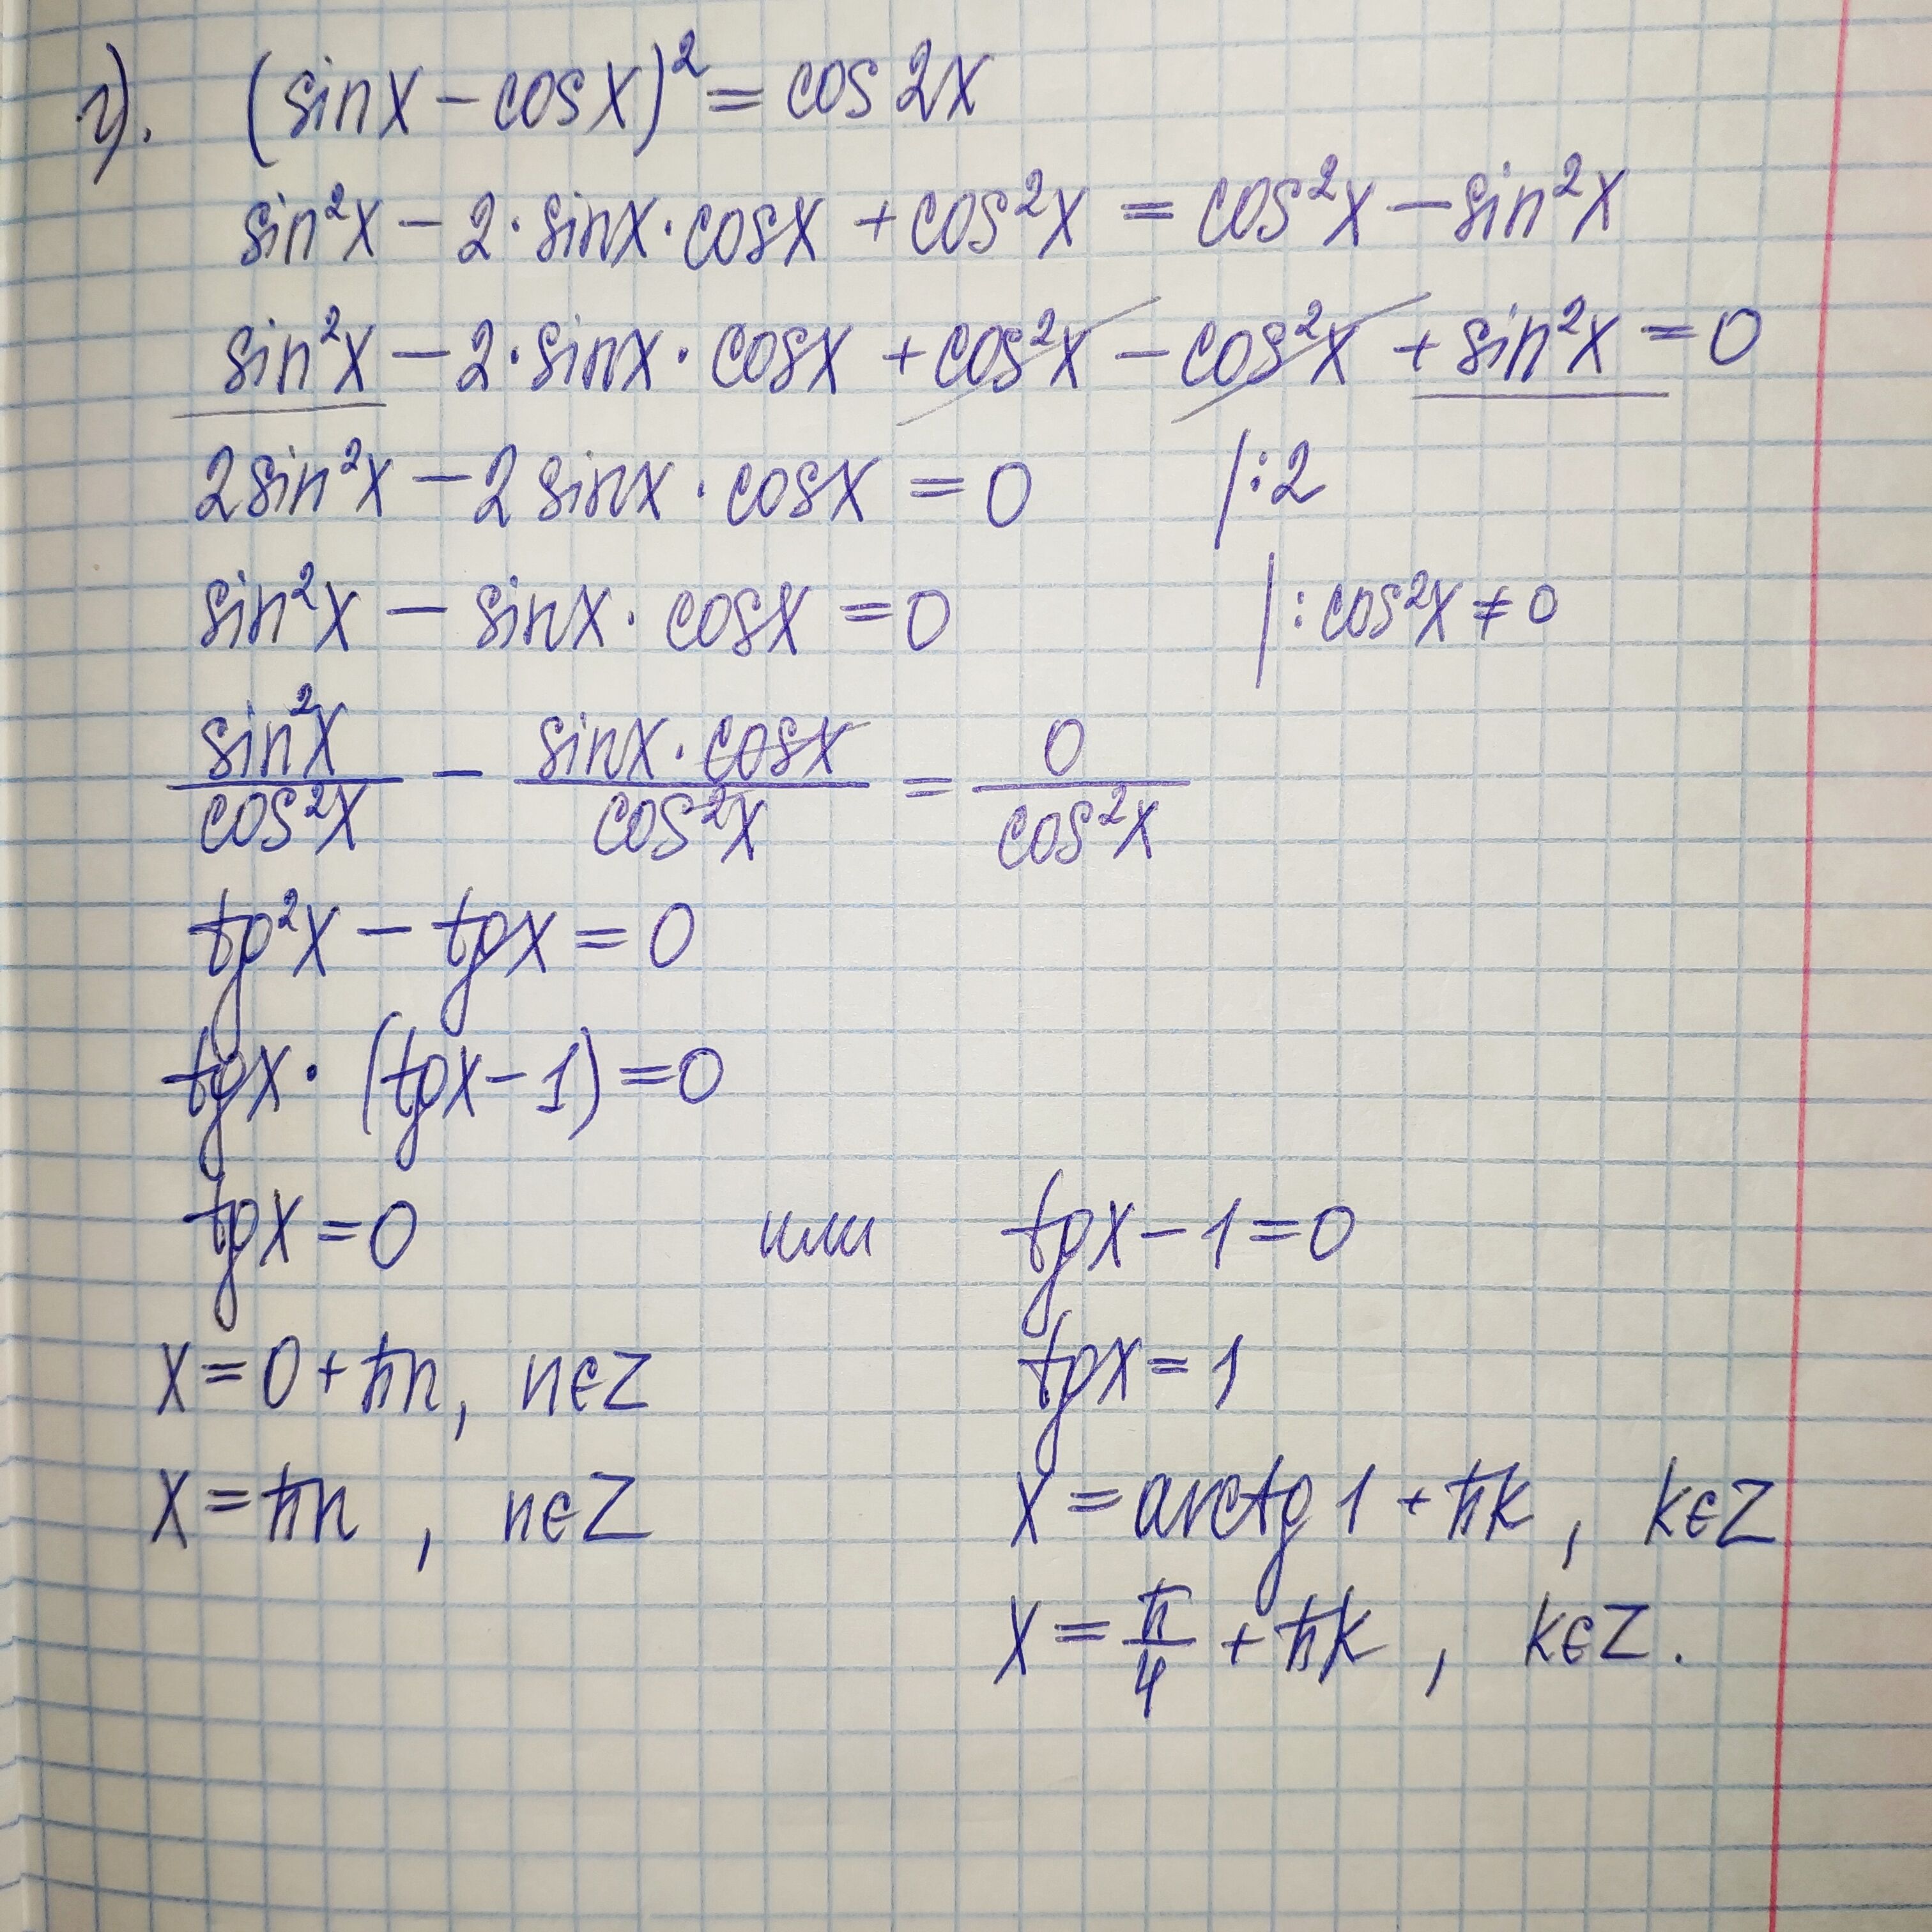 г). (sinx - cosx)² = cos2x
sin²x - 2·sinx·cosx + cos²x = cos²x - sin²x
sin²x - 2·sinx·cosx + cos²x - cos²x + sin²x = 0
2sin²x - 2sinx·cosx = 0 |:2
sin²x - sinx·cosx = 0 |:cos²x ≠ 0
sin²x/cos²x - sinx·cosx/cos²x = 0/cos²x
tg²x - tgx = 0
tgx·(tgx - 1) = 0
tgx = 0 или tgx - 1 = 0
x = 0 + πn, n∈Z tgx = 1
x = πn, n∈Z x = arctg1 + πk, k∈Z
x = π/4 + πk, k∈Z.